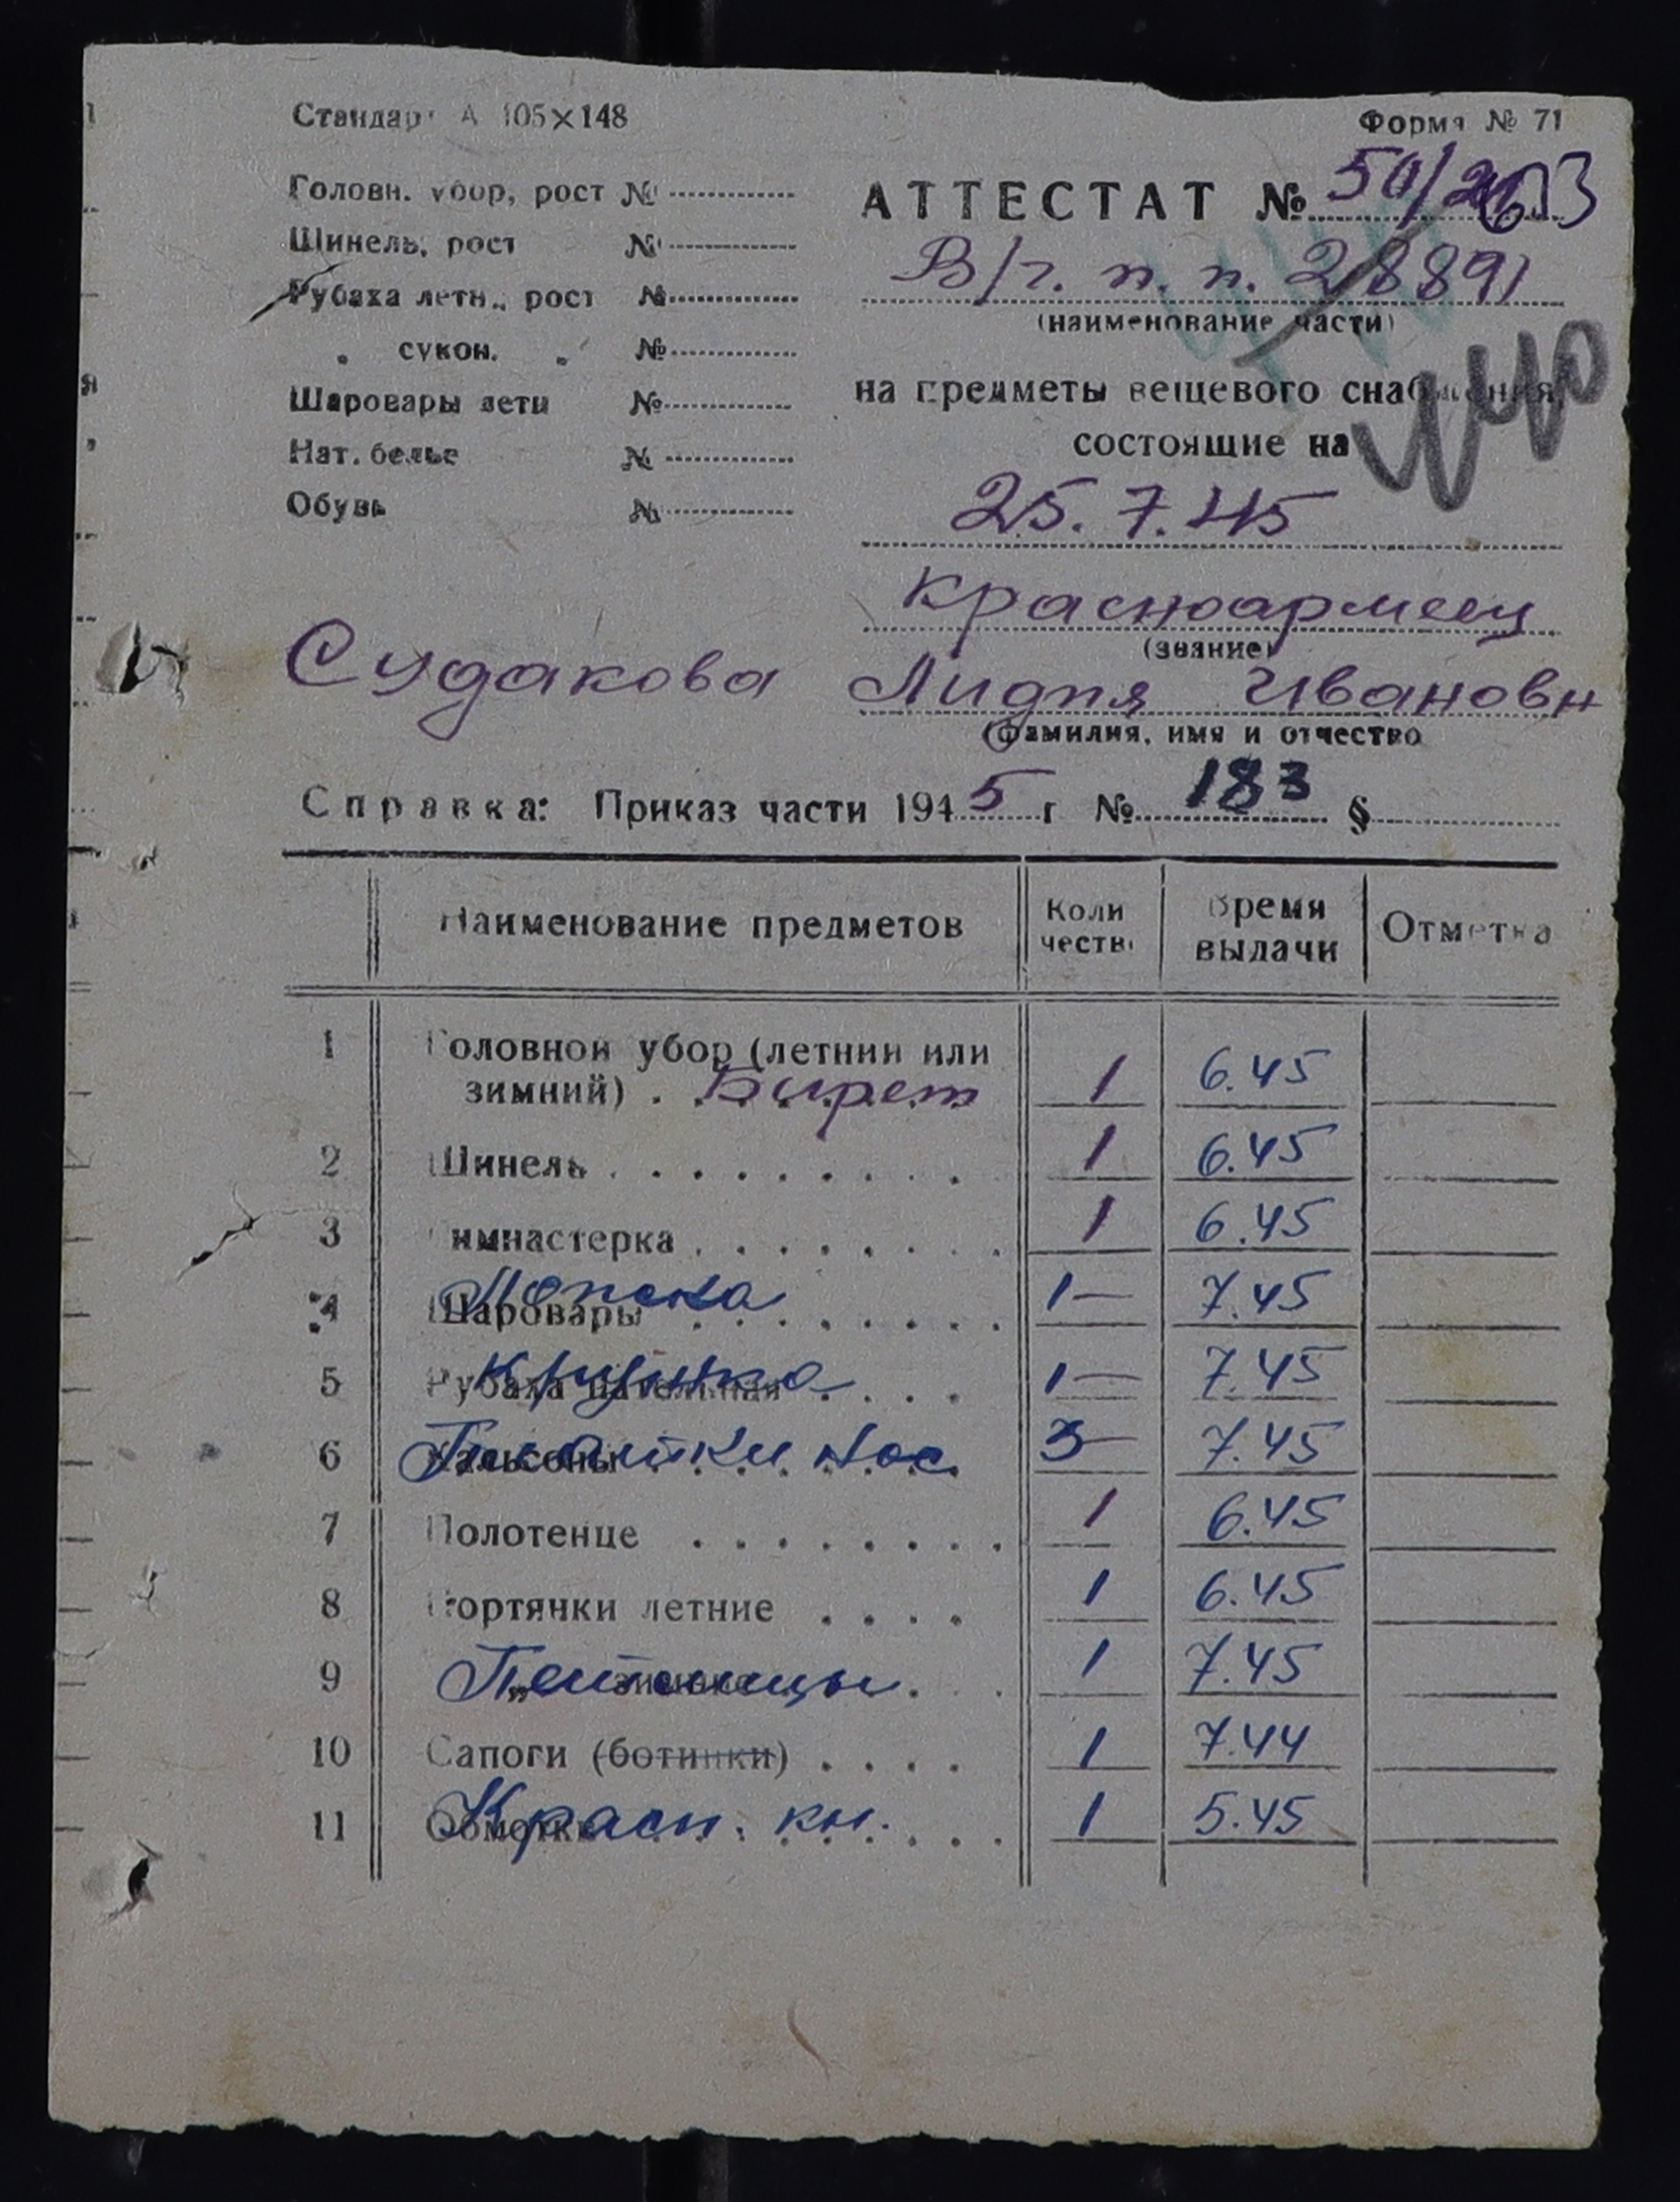 Стандарт А 105×148
Форма № 71
Головн. убор, рост №
Шинель, рост №
Рубаха летн., рост №
„ сукон. „ №
Шаровары летн №
Нат. белье №
Обувь №
АТТЕСТАТ №
В/г. п. п. 28891
(наименование части)
на предметы вещевого снабжения
состоящие на
25.7.45
Красноармеец
(звание)
Судакова Лидия Ивановн
(фамилия, имя и отчество
Справка: Приказ части 1945 г № 183 §
Наименование предметов Коли честв Время выдачи Отметка
1 Головной убор (летний или
зимний) . Бирет 1 6.45
2 Шинель 1 6.45
3 Гимнастерка 1 6.45
4 Шаровары 1— 7.45
5 Рубаха нательная 1— 7.45
6 Кальсоны нос 3— 7.45
7 Полотенце 1 6.45
8 Портянки летние 1 6.45
9 „ зимние 1 7.45
10 Сапоги (ботинки) 1 7.44
11 Обмотки Красн. кн. 1 5.45